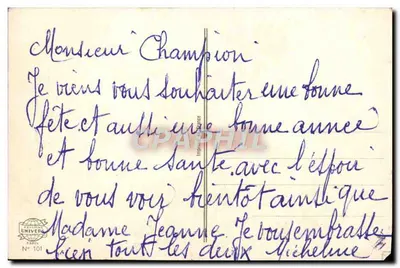 Monsieur Champion
Je viens vous souhaiter une bonne
fête et aussi une bonne année
et bonne santé avec l'éspoir
de vous voir bientôt ainsi que
Madame Jeanne Je vous embrasse
bien touts les deux Micheline
UNIVERS
N° 101